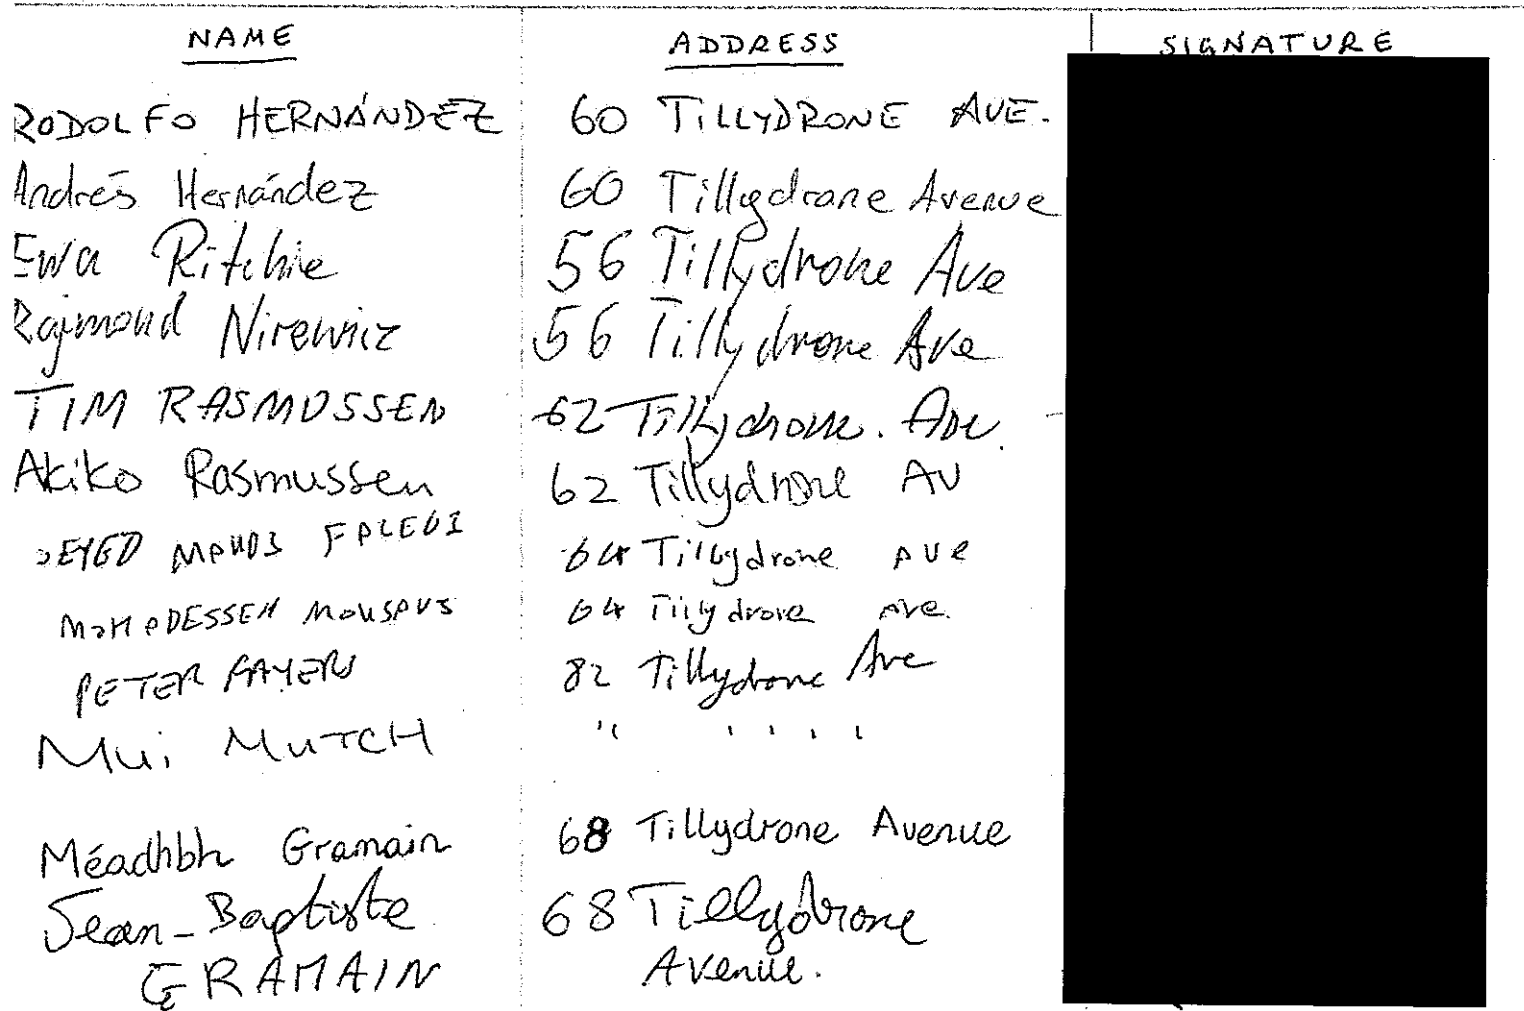 NAME ADDRESS SIGNATURE
RODOLFO HERNÁNDEZ 60 TILLYDRONE AVE.
Andrés Hernández 60 Tillydrone Avenue
Ewa Ritchie 56 Tillydrone Ave
Rajmond Nirewicz 56 Tillydrone Ave
TIM RASMUSSEN 62 Tillydrone. Ave.
Akiko Rasmussen 62 Tillydrone AV
SEYED 64 Tillydrone AVE
64 Tillydrone Ave.
PETER 82 Tillydrone Ave
Mui MUTCH " " " " "
Méadhbh Gramain 68 Tillydrone Avenue
Jean-Baptiste 68 Tillydrone
GRAMAIN Avenue.